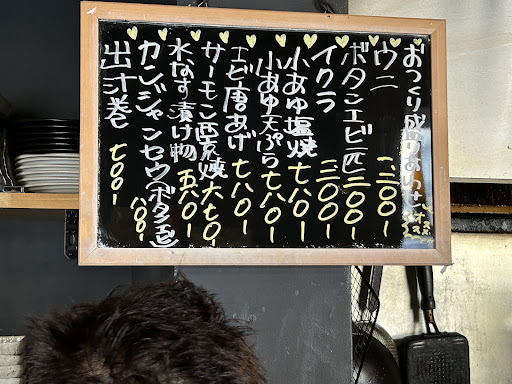 おつくり盛り合わせ
ウニ 二二〇〇ー
ボタンエビ一匹 三〇〇ー
イクラ 三〇〇ー
小あゆ塩焼 七八〇ー
小あゆ天ぷら 七八〇ー
エビ唐あげ 七八〇ー
サーモン西京焼 六七〇ー
水なす漬け物 五八〇ー
カンジャンセウ(ボタンエビ) 八〇〇ー
出汁巻 七〇〇ー